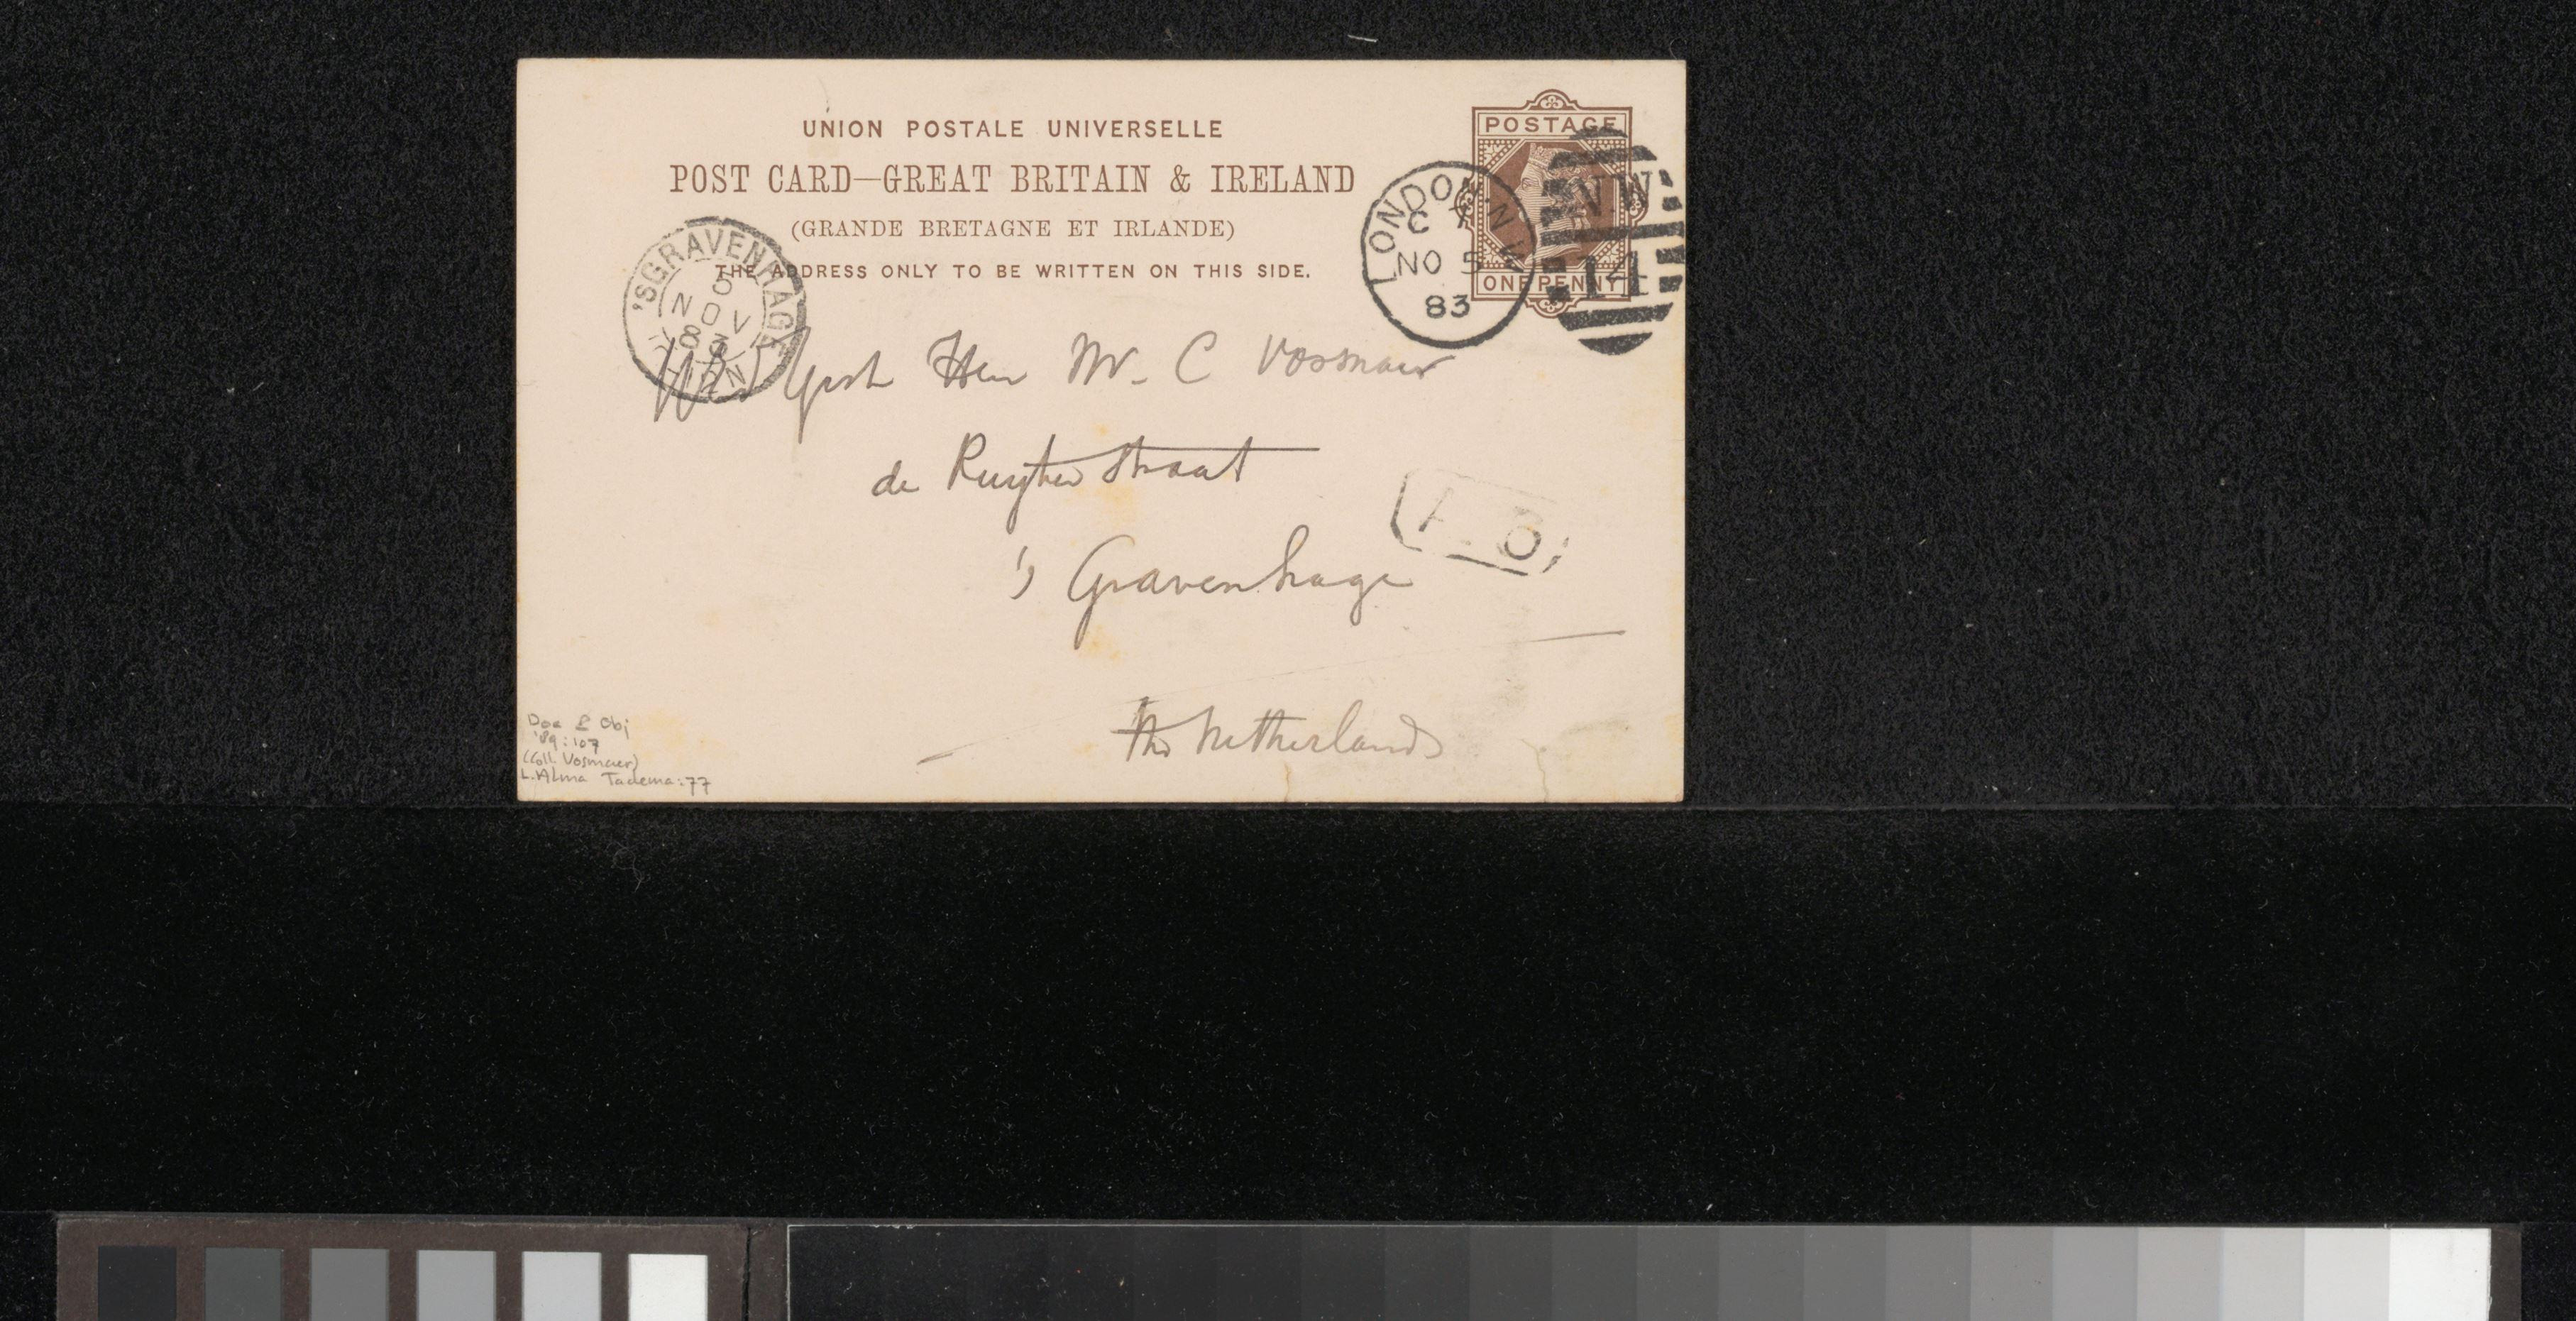 UNION POSTALE UNIVERSELLE
POST CARD—GREAT BRITAIN & IRELAND
(GRANDE BRETAGNE ET IRLANDE)
THE ADDRESS ONLY TO BE WRITTEN ON THIS SIDE.
POSTAGE
ONE PENNY
LONDON N W
C 7
NO 5
83
N.W.
14
'SGRAVENHAGE
NOV
83
Heer Mr. C Vosmaer
de Ruyter Straat
's Gravenhage
The Netherlands
Doc & Obj
'89:107
(Coll. Vosmaer)
L. Alma Tadema: 77